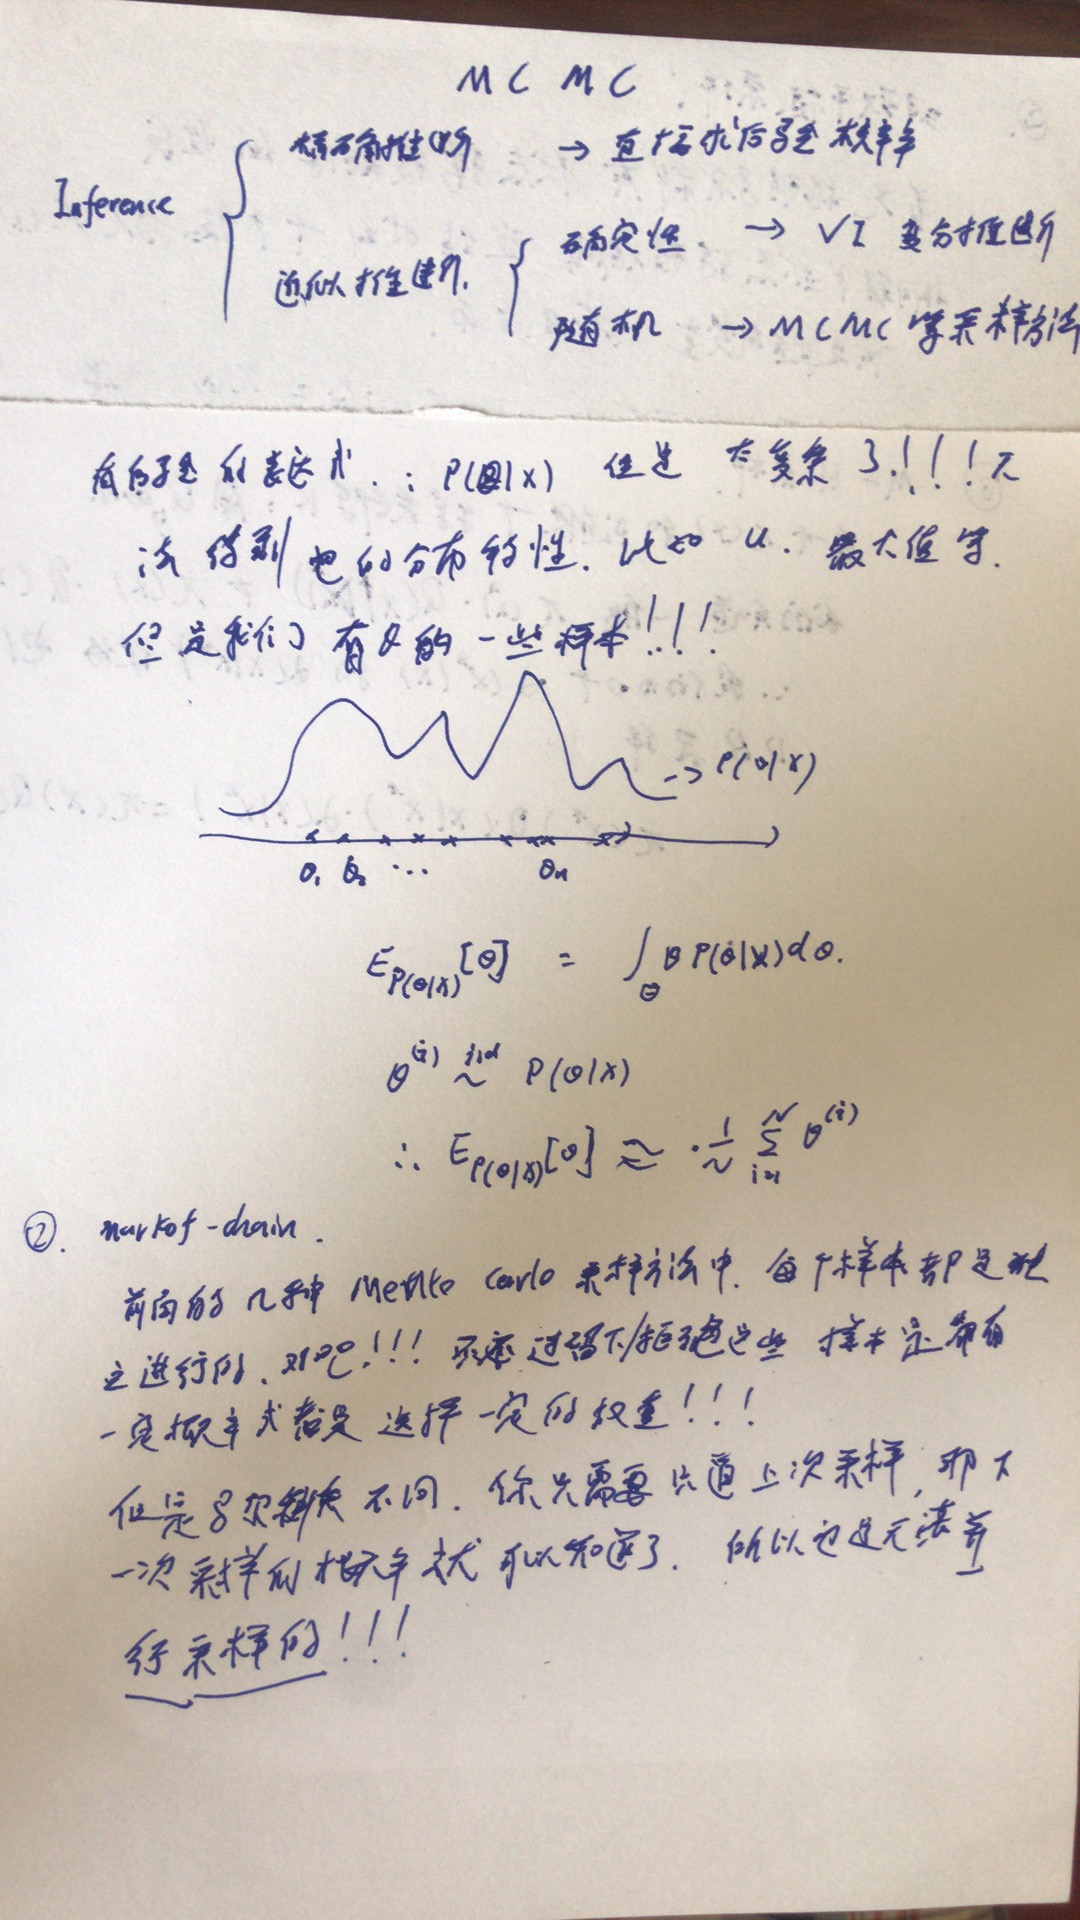 MCMC
Inference
精确推断 → 直接求后验概率
近似推断.
确定性. → VI 变分推断
随机 → MCMC 等采样方法
有后验的表达式.: P(θ|x) 但是 太复杂了!!!无
法得到它的分布特性. 比如 u. 最大值等.
但是我们有θ的一些样本!!!
→ P(θ|x)
θ₁ θ₂ ... θn
E_{P(θ|x)}[θ] = ∫_Θ θ P(θ|x)dθ.
θ^{(i)} iid ~ P(θ|x)
∴ E_{P(θ|x)}[θ] ≈ 1/N Σ_{i=1}^{N} θ^{(i)}
②. markof-chain.
前面的几种 Mentto Carlo 采样方法中. 每个样本都是独
立进行的、对吧!!! 不过接下/拒绝这些 样本是都有
一定概率或者是 选择一定的权重!!!
但是马尔科夫不同. 你只需要知道上次采样, 那下
一次采样的概率就可以知道了. 所以也是无法并
行采样的!!!